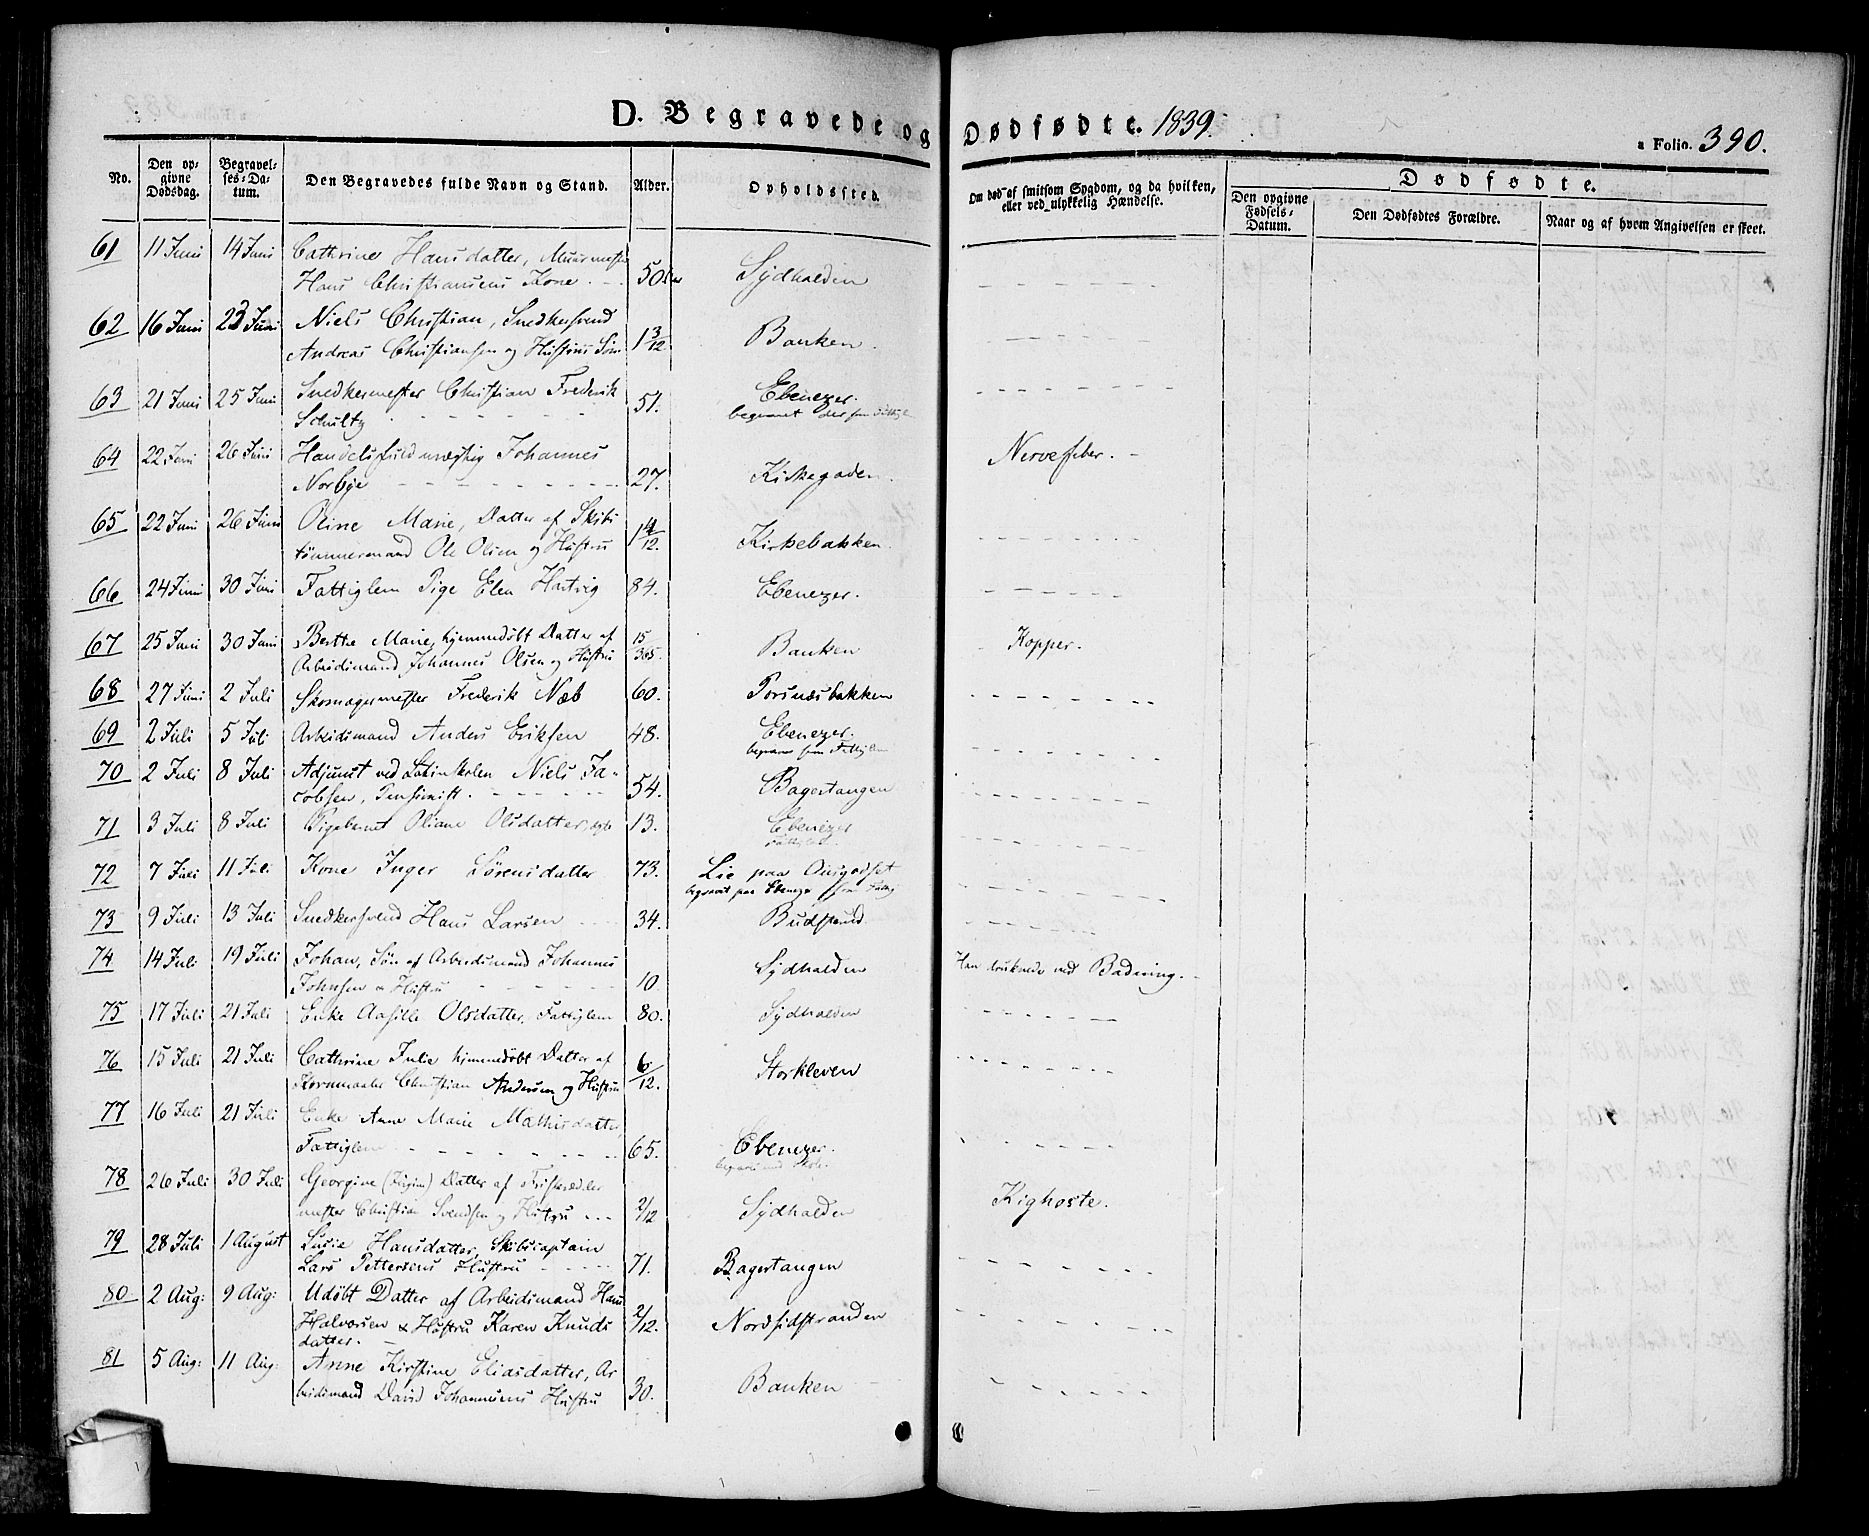 D. Begravede og Dødfødte. 1839.
a Folio. 390.
No.
Den opgivne Dødsdag.
Begravelses-Datum.
Den Begravedes fulde Navn og Stand.
Alder.
Opholdssted.
Om død af smitsom Sygdom, og da hvilken, eller ved ulykkelig Hændelse.
Dødfødte.
Den opgivne Fødsels-Datum.
Den Dødfødtes Forældre.
Naar og af hvem Angivelsen er skeet.
61 11 Juni 14 Juni Cathrine Hansdatter, Muurmester
Hans Christiansens Kone 50 Sydhalden
62 16 Juni 23 Juni Niels Christian, Snedkersvend
Andreas Christiansen og Hustrus Søn 1 3/12 Banken.
63 21 Juni 25 Juni Snedkermester Christian Frederik
Schultz 51. Ebenezer.
begravet
64 22 Juni 26 Juni Handelsfuldmægtig Johannes Nervefeber.
Norbye 27. Kirkegaden.
65 22 Juni 26 Juni Oline Marie, Datter af Skibs
tømmermand Ole Olsen og Hustru 1 4/12. Kirkebakken.
66 24 Juni 30 Juni Fattiglem Pige Elen Hartvig 84. Ebenezer.
67 25 Juni 30 Juni Berthe Marie, hjemmedøbt Datter af
Arbeidsmand Johannes Olsen og Hustru 15/365. Banken Kopper.
68 27 Juni 2 Juli Skomagermester Frederik Næb 60. Porsnæsbakken
69 2 Juli 5 Juli Arbeidsmand Anders Eriksen 48. Ebenezer.
70 2 Juli 8 Juli Adjunct ved Latinskolen Niels Ja-
cobsen, Pensionist. 54. Bagertangen
71 3 Juli 8 Juli Pigebarnet Oliane Olsdatter, 13. Ebenezer
72 7 Juli 11 Juli Kone Inger Sørensdatter 73. Lie paa
begravet paa Ebenezer
73 9 Juli 13 Juli Snedkersvend Hans Larsen 34. Budstrand.
74 14 Juli 19 Juli Johan, Søn af Arbeidsmand Johannes
Johnsen & Hustru 10 Sydhalden Han druknede ved Badning.
75 17 Juli 21 Juli Enke Aasille Olsdatter, Fattiglem 80. Sydhalden
76 15 Juli 21 Juli Cathrine Julie hjemmedøbt Datter af
Kornmaaler Christian Andersen og Hustru 6/12. Storkleven
77 16 Juli 21 Juli Enke Anne Marie Mathisdatter,
Fattiglem 65. Ebenezer.
78 26 Juli 30 Juli Georgine Datter af
mester Christian Svendsen og Hustru 2/12 Sydhalden Kighoste.
79 28 Juli 1 August Susie Hansdatter, Skibscaptain
Lars Pettersens Hustru 71. Bagertangen
80 2 Aug: 9 Aug: Udøbt Datter af Arbeidsmand Hans
Halvorsen & Hustru Karen Knuds
datter. 2/12. Nordsidstranden
81 5 Aug: 11 Aug: Anne Kirstine Eliasdatter, Ar
beidsmand David Johannesens Hustru 30. Banken